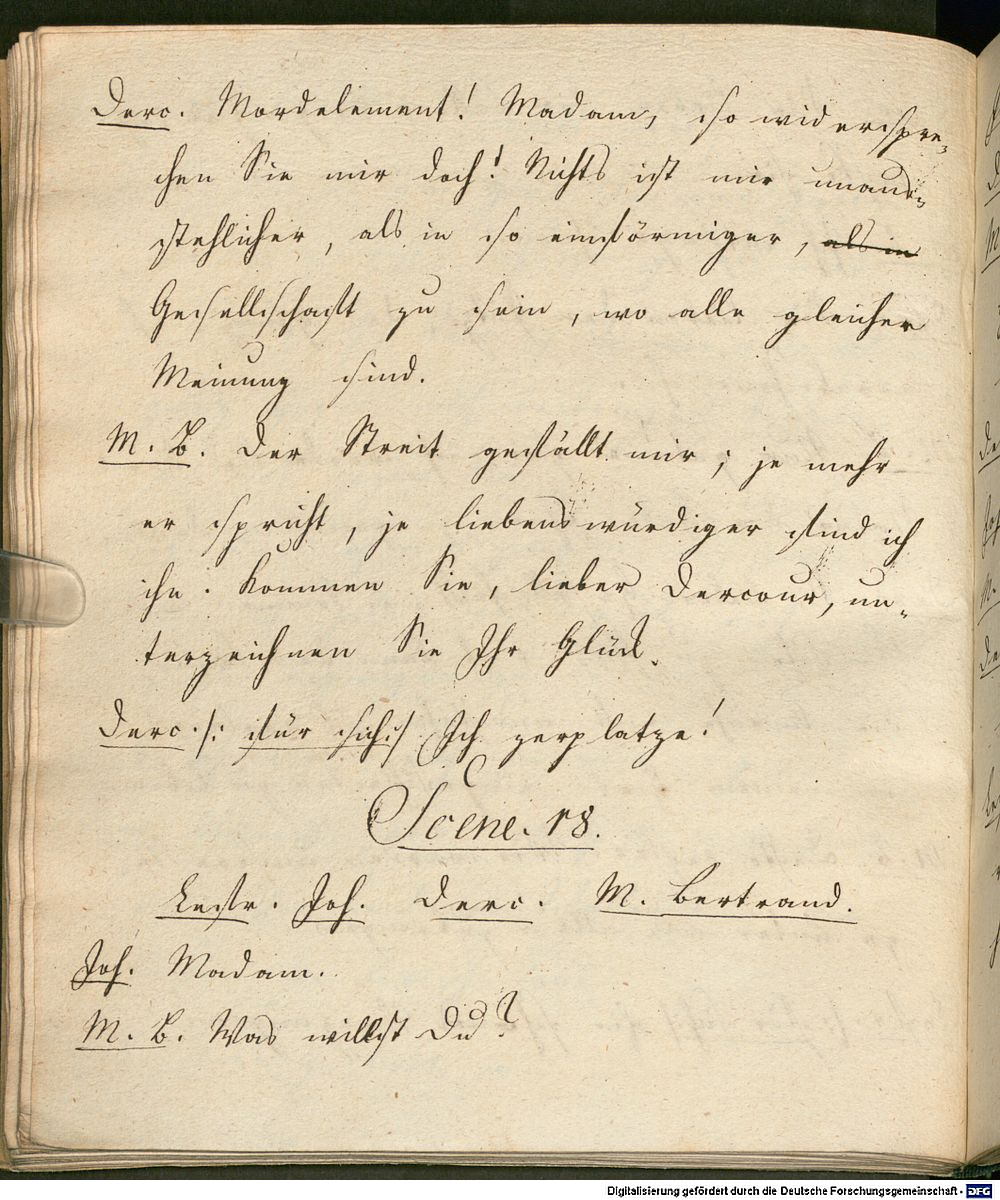 Derc. Mordelement! Madam, so widerspre-
chen Sie mir doch! Nichts ist mir unaus-
stehlicher, als in so einförmiger, als in
Gesellschaft zu sein, wo alle gleicher
Meinung sind.
M. B. Der Streit gefällt mir; je mehr
er spricht, je liebenswürdiger find ich
ihn. Kommen Sie, lieber Dercour, un-
terzeichnen Sie Ihr Glück.
Derc. /: für sich :/ Ich zerplatze!
Scene. 18.
Lestr. Joh. Derc. M. Bertrand.
Joh. Madam.
M. B. Was willst Du?
Digitalisierung gefördert durch die Deutsche Forschungsgemeinschaft - DFG